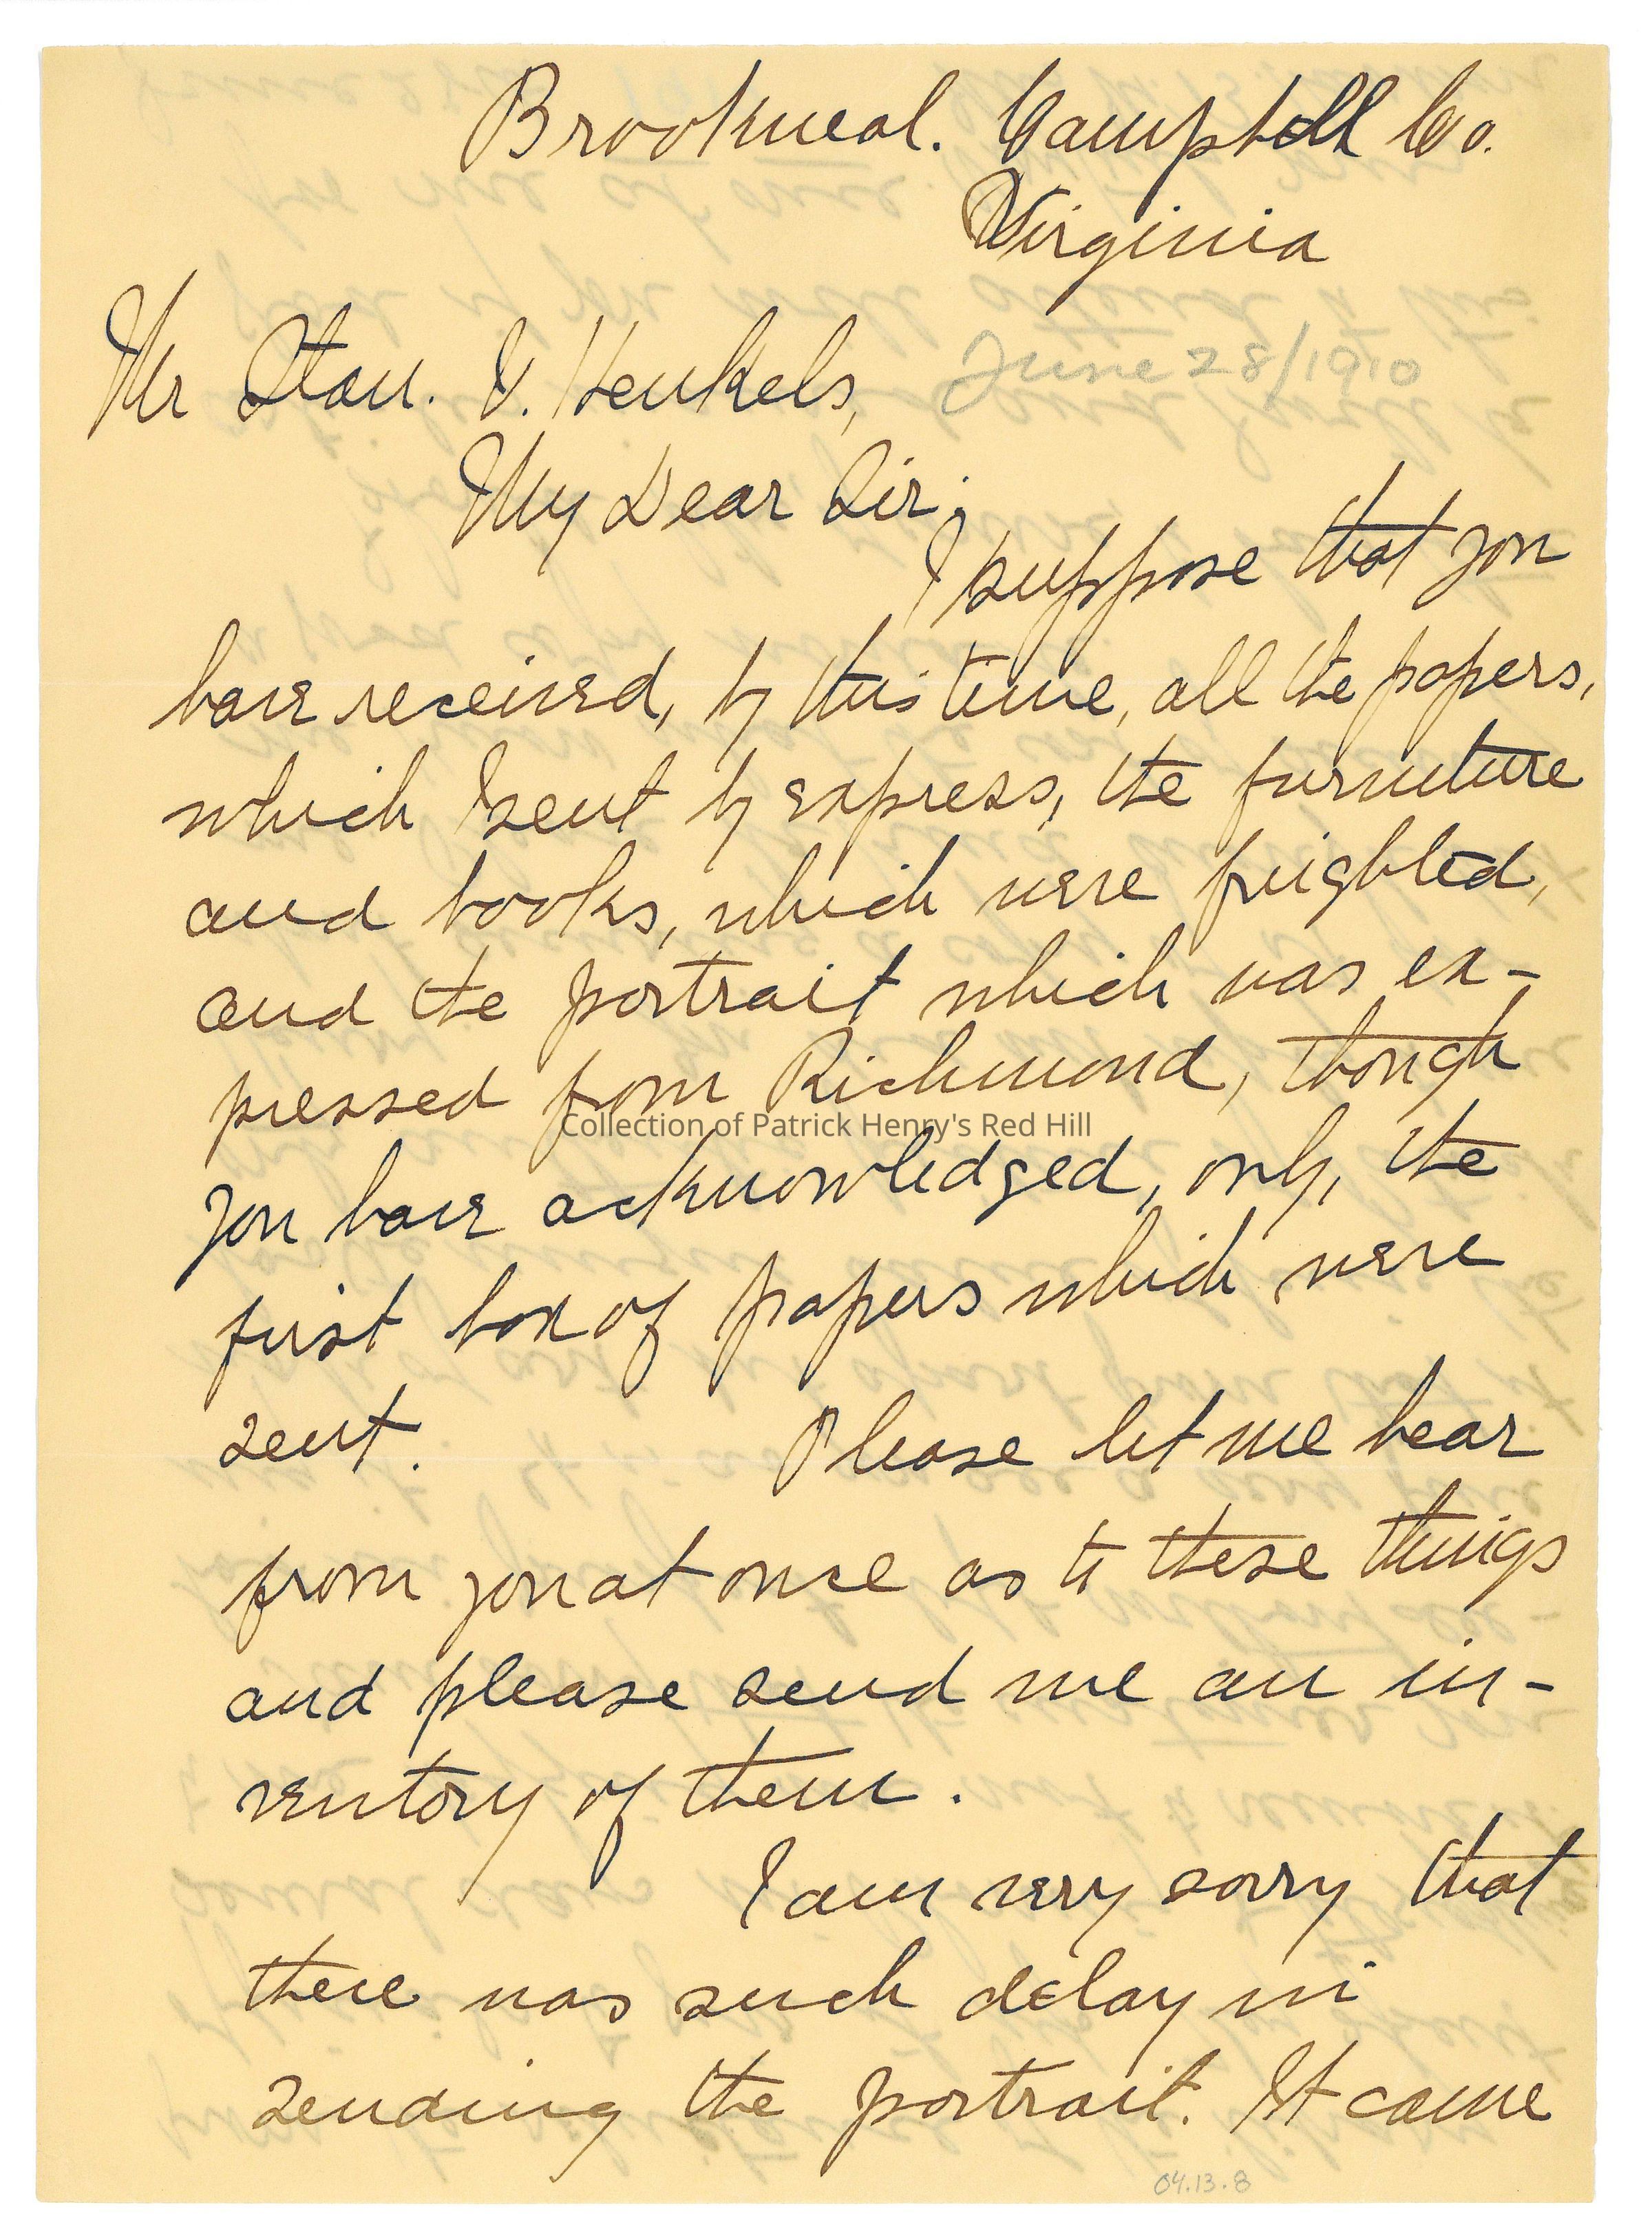 Brookneal. Campbell Co.
Virginia
Mr Stan. V. Henkels,
June 28/1910
My Dear Sir;
I suppose that you
have received, by this time, all the papers,
which I sent by express, the furniture
and books, which were freighted,
and the portrait which was ex-
pressed from Richmond, though
Collection of Patrick Henry's Red Hill
you have acknowledged, only, the
first box of papers which were
sent. Please let me hear
from you at once as to these things
and please send me an in-
ventory of them.
I am very sorry that
there was such delay in
sending the portrait. It came
04.13.8